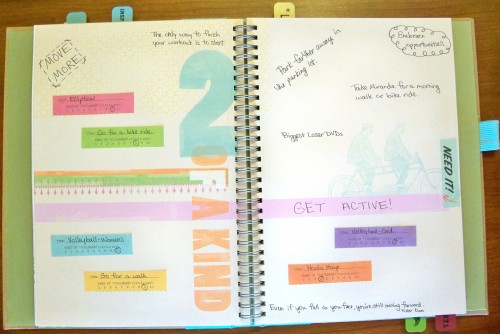 MOVE
MORE!
The only way to finish
your workout is to start.
2
OF A KIND
Elliptical
Go for a bike ride.
Volleyball-Women's
Go for a walk
Park farther away in
the parking lot.
Embrace
opportunities!
Take Miranda for a morning
walk or bike ride.
Biggest Loser DVDs
NEED IT!
GET ACTIVE!
Volleyball-Coed
Even if you fall on your face, you're still moving forward.